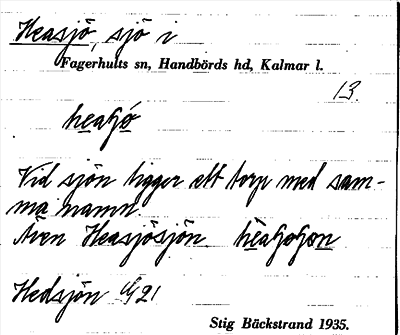 Heasjö, sjö i
Fagerhults sn, Handbörds hd, Kalmar l.
13.
Vid sjön ligger ett torp med sam-
ma namn.
Även Heasjösjön
Hedsjön 21
Stig Bäckstrand 1935.